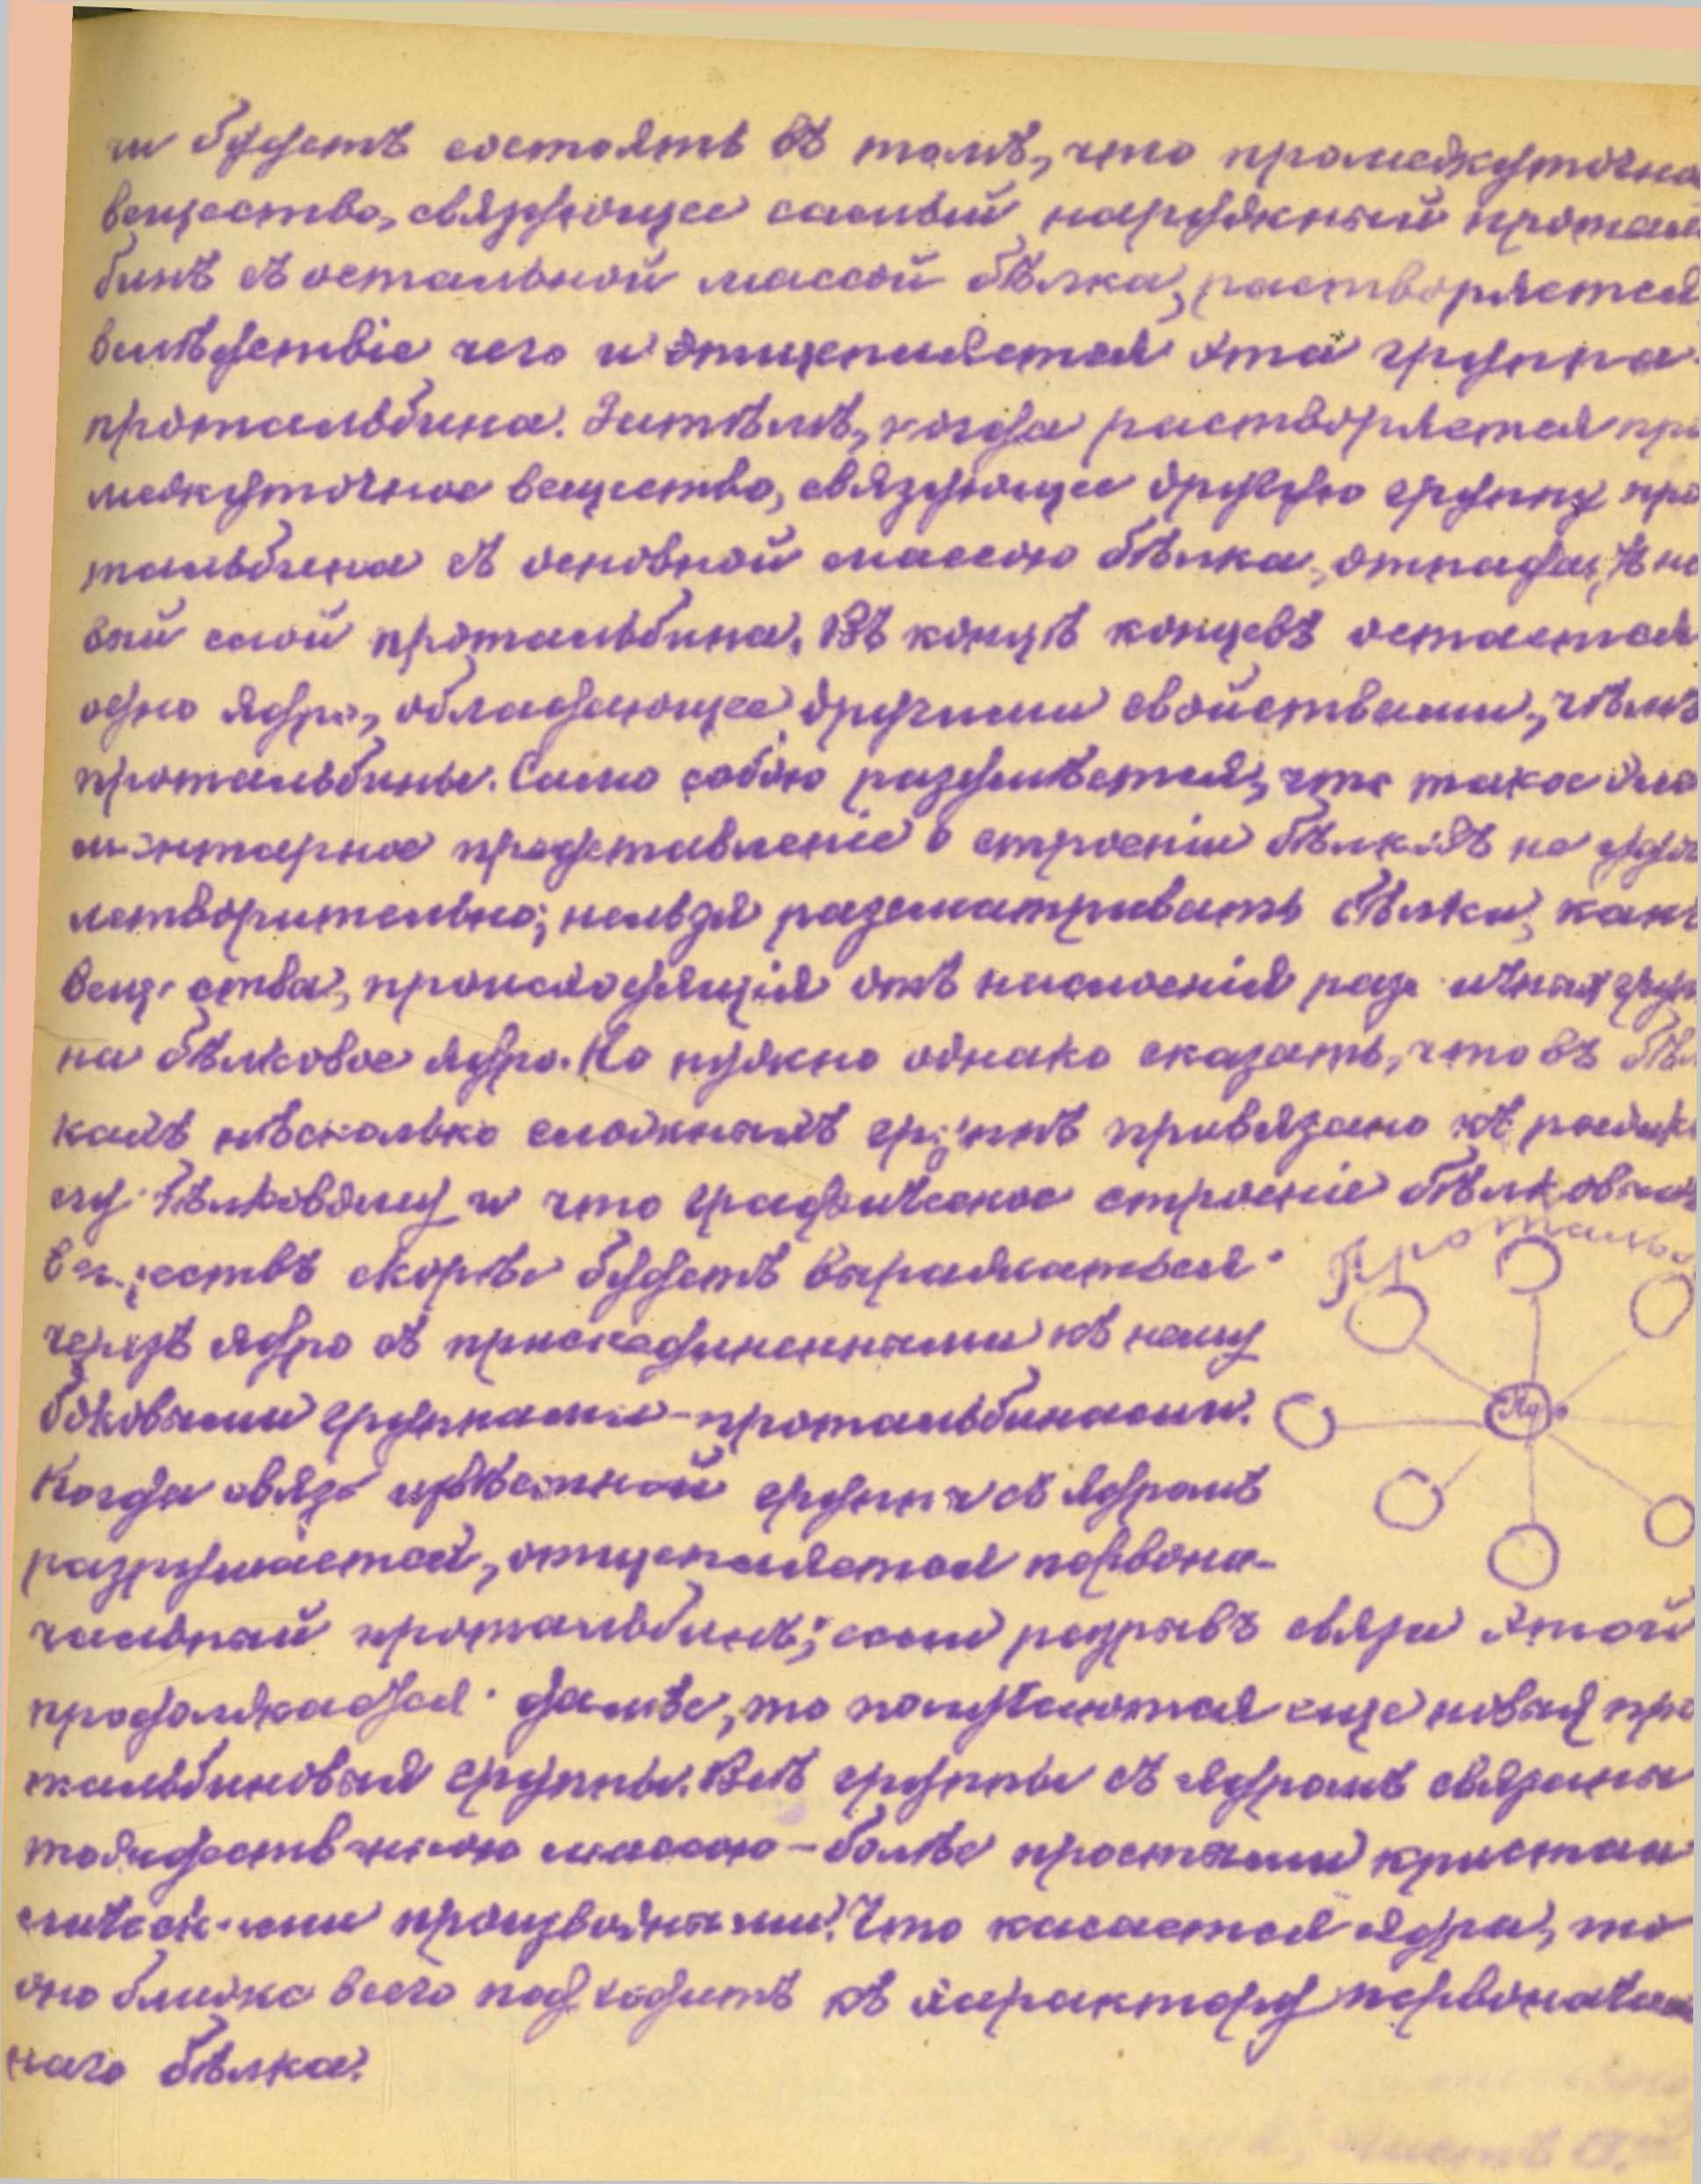 ни будетъ состоять въ томъ, что промежуточно
вещество, связующее самый наружный протал
бинъ съ остальной массой бѣлка, растворяется
вслѣдствіе чего и отщепляется эта группа
протальбина. Затѣмъ, когда растворяется про
межуточное вещество, связующее другую группу про
тальбина съ основной массою бѣлка, отпадаетъ но
вый слой протальбина. Въ концѣ концевъ остается
одно ядро, обладающее другими свойствами, чѣмъ
протальбины. Само собою разумѣется, что такое эле
ментарное представленіе о строеніи бѣлковъ не удов
летворительно; нельзя разсматривать бѣлки, какъ
вещества, происходящія отъ наслоенія различныхъ груп
на бѣлковое ядро. Но нужно однако сказать, что въ бѣл
кахъ нѣсколько сложныхъ группъ привязано къ радика
лу бѣлковому и что графическое строеніе бѣлковыхъ
веществъ скорѣе будетъ выражаться
черезъ ядро съ присоединенными къ нему
боковыми группами-протальбинами.
Когда связь извѣстной группы съ ядромъ
разрушается, отщепляется первона-
чальный протальбинъ; если разрывъ связи этой
продолжается далѣе, то получаются еще новыя про
тальбиновыя группы. Всѣ группы съ ядромъ связаны
тождественною массою - болѣе простыми кристал
лическими производными. Что касается ядра, то
оно ближе всего подходитъ къ характеру первоначаль
наго бѣлка.
Проталь
Ядро